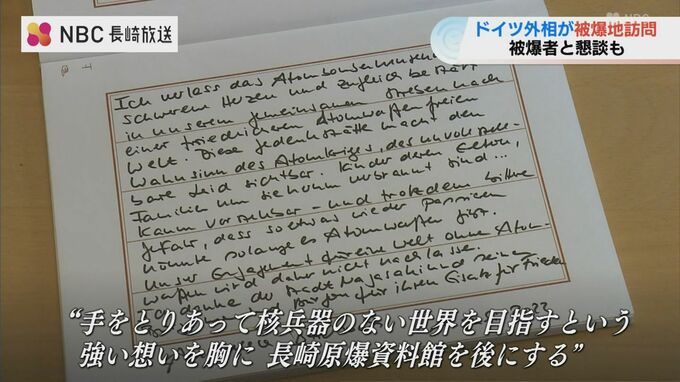 NBC 長崎放送
ドイツ外相が被爆地訪問
被爆者と懇談も
NBC
Ich verlass das Atombombenmuseum
schwerem Herzen und zugleich bestärkt
in unserem gemeinsamen Streben nach
einer friedlicheren Atomwaffenfreien
Welt. Diese Gedenkstätte macht den
Wahnsinn des Atomkrieges, das unvorstell-
bare Leid sichtbar. Kinder deren Eltern,
Familien um sie herum verbrannt sind...
kaum vorstellbar - und trotzdem bittere
Gefahr, dass so etwas wieder passieren
könnte solange es Atomwaffen gibt.
Unser Engagement für eine Welt ohne Atom-
waffen wird daher nicht nachlassen.
der Stadt Nagasaki und seinen
für ihren Einsatz für Frieden
“手をとりあって核兵器のない世界を目指すという
強い想いを胸に 長崎原爆資料館を後にする”